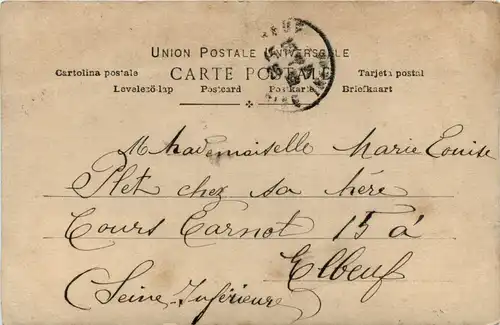 UNION POSTALE UNIVERSELLE
Cartolina postale CARTE POSTALE Tarjeta postal
Levelező-lap Postcard Postkarte Briefkaart
Mademoiselle Marie Louise
Plet chez sa Mère
Cours Carnot 15 à
Elbeuf
(Seine-Inférieure)